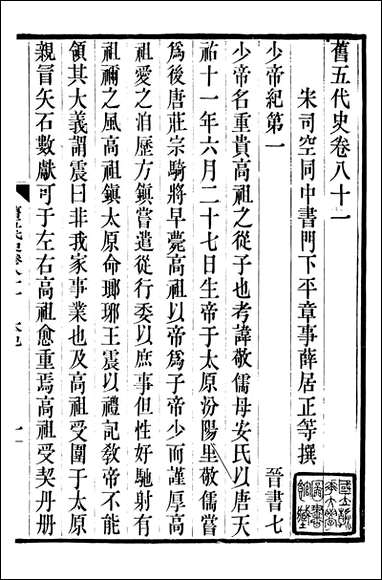 舊五代史卷八十一
宋司空同中書門下平章事薛居正等撰
少帝紀第一 晉書七
少帝名重貴高祖之從子也考諱敬儒母安氏以唐天
祐十一年六月二十七日生帝于太原汾陽里敬儒嘗
爲後唐莊宗騎將早薨高祖以帝爲子帝少而謹厚高
祖愛之洎歷方鎮嘗遣從行委以庶事但性好馳射有
祖禰之風高祖鎮太原命瑯琊王震以禮記教帝不能
領其大義謂震曰非我家事業也及高祖受圍于太原
親冒矢石數獻可于左右高祖愈重焉高祖受契丹册